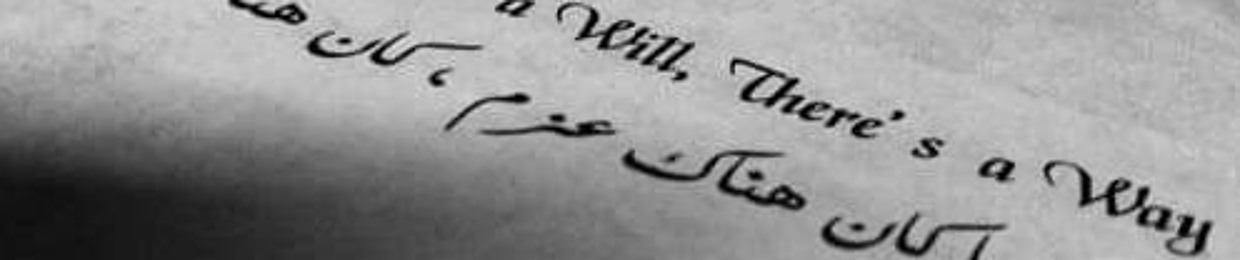 a Will, There's a Way
كان هناك عزم ، كان